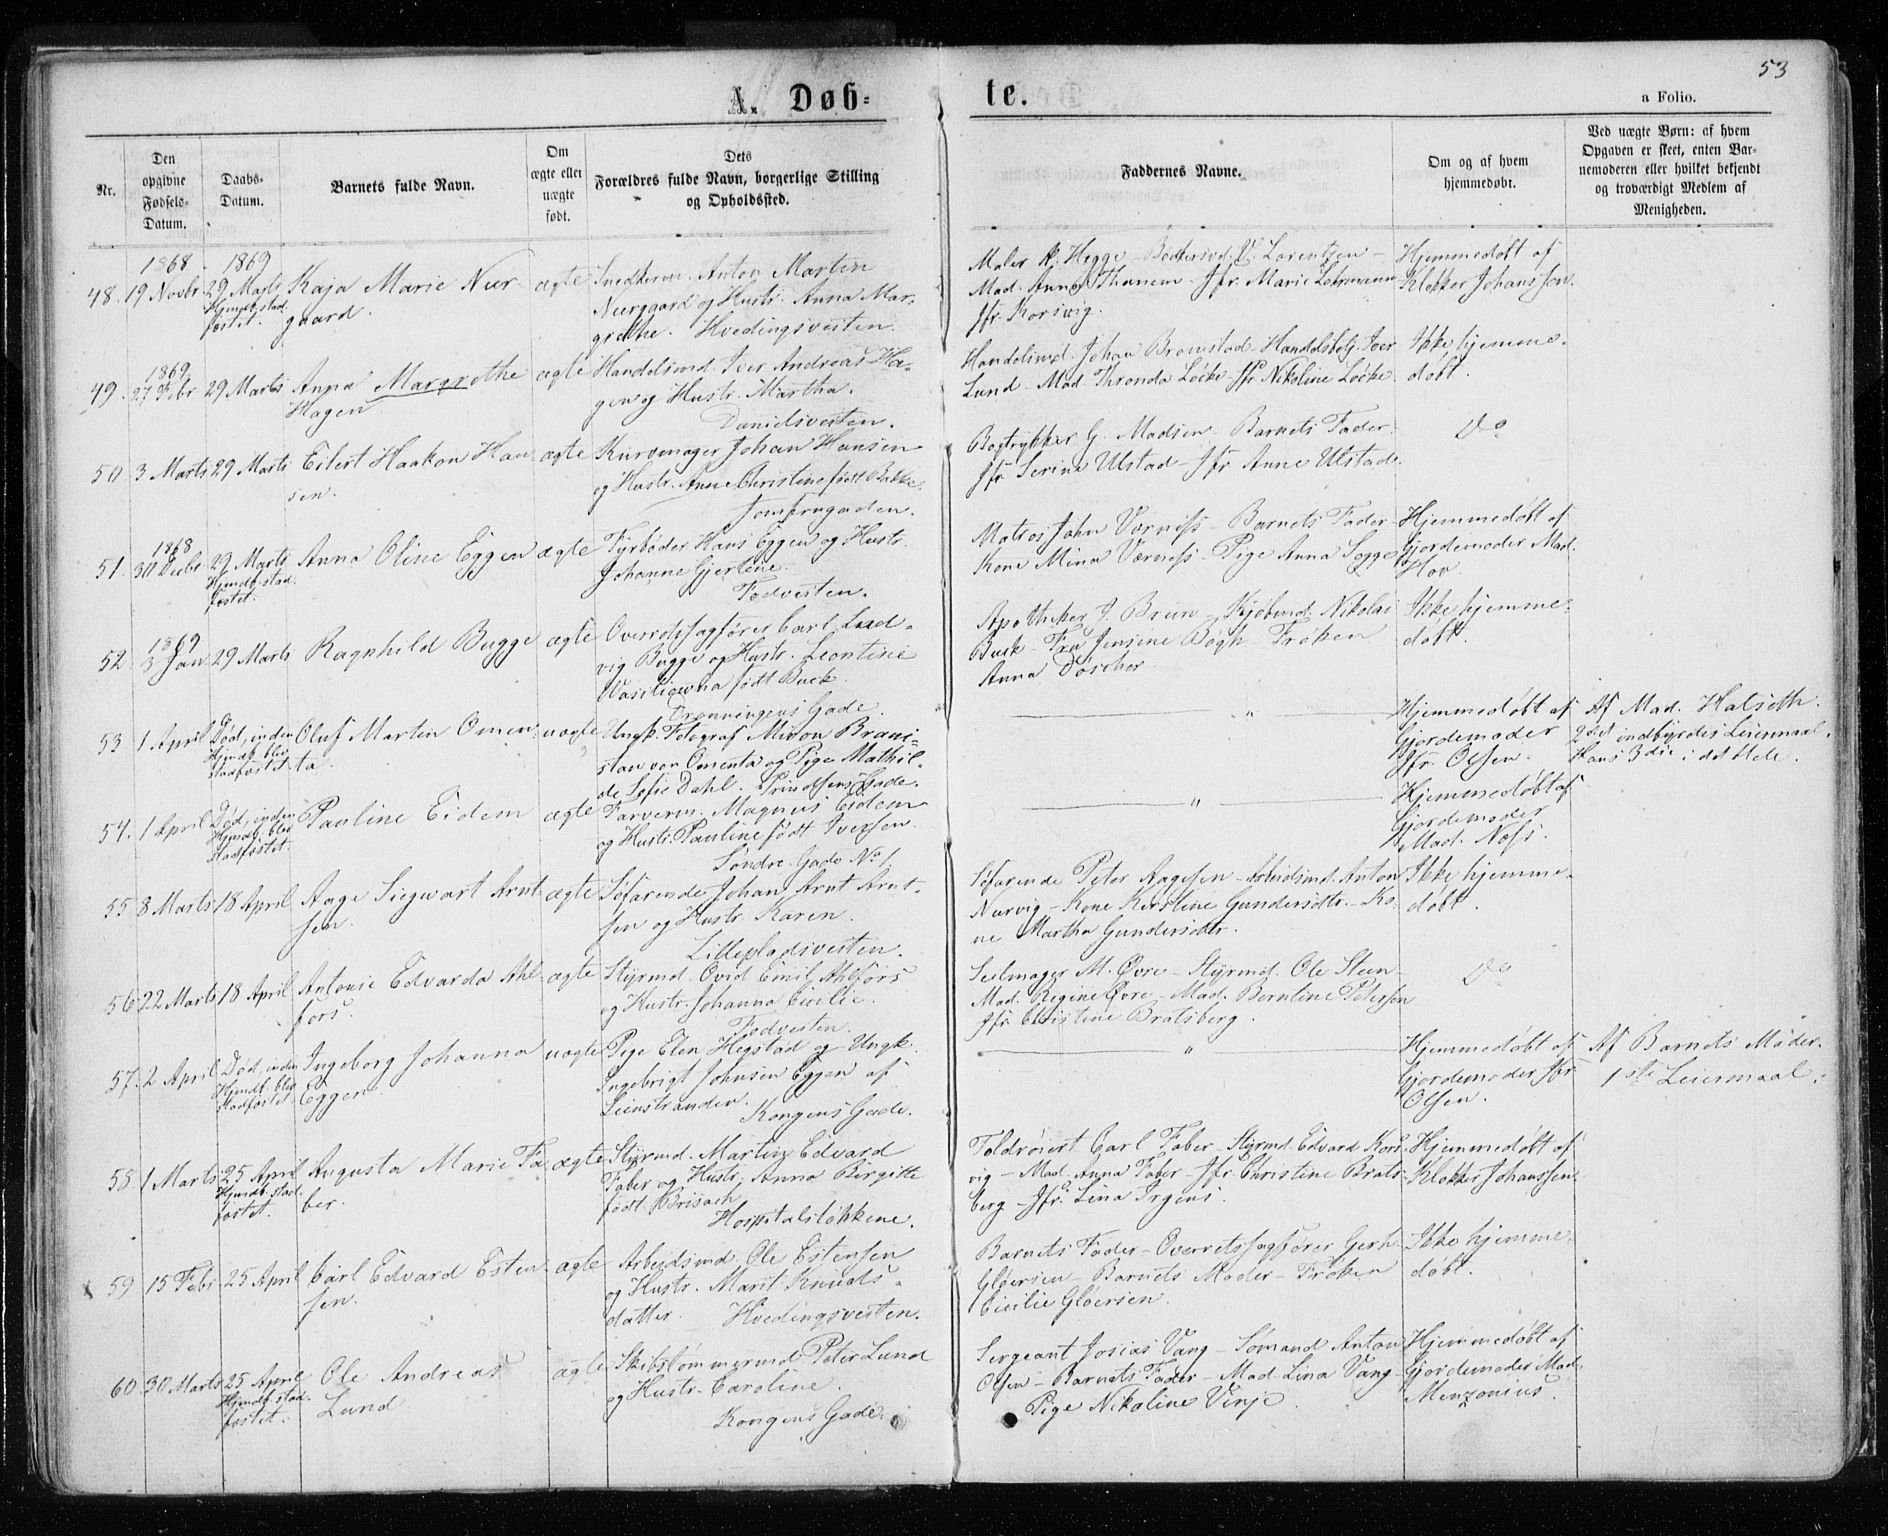 53
A. Døb-
te.
a Folio.
Nr.
Den
opgivne
Fødsels-
Datum.
Daabs-
Datum.
Barnets fulde Navn.
Om
ægte eller
uægte
født.
Dets
Forældres fulde Navn, borgerlige Stilling
og Opholdssted.
Faddernes Navne.
Om og af hvem
hjemmedøbt.
Ved uægte Børn: af hvem
Opgaven er skeet, enten Bar-
nemoderen eller hvilket bekjendt
og troværdigt Medlem af
Menigheden.
48.
1868
19 Novbr
1869
29 Marts
Hjmdb. stad
fæstet.
Kaja Marie Neer-
gaard.
ægte
Snedkerm. Anton Martin
Neergaard og Hustr. Anna Mar-
grethe. Hvedingsveiten.
Maler Hegge - Bødkersvd. Lorentzen -
Mad. Anna Thanem - Jfr. Marie Lehrmann
Jfr. Korsvig.
Hjemmedøbt af
Klokker Johanssen.
49.
1869
27 Febr
29 Marts
Anna Margrethe
Hagen
ægte
Handelsmd. Iver Andreas Ha-
gen og Hustr. Martha.
Danielsveiten.
Handelsmd. Johan Bromstad - Handelsbetj. Iver
Lund - Mad. Thronda Løcke - Jfr. Nikoline Løcke.
Ikke hjemme-
døbt.
50
3 Marts
29 Marts
Eilert Haakon Han
sen.
ægte
Kurvemager Johan Hansen
og Hustr. Anne Christine født Bakke.
Jomfrugaden.
Bogtrykker G. Madsen - Barnets Fader.
Jfr. Serine Ulstad - Jfr. Anne Ulstad.
Do
51.
1868
30 Decbr
29 Marts
Hjmdb. stad.
fæstet.
Anna Oline Eggen
ægte
Fyrbøder Hans Eggen og Hustr.
Johanne Gjertine.
Fodveiten.
Matros John Værness - Barnets Fader -
Kone Mina Værness - Pige Anna Sogge
Hjemmedøbt af
Gjordemoder Mad.
Hov.
52.
1869
3 Jan
29 Marts
Ragnhild Bugge
ægte
Overretssagfører Carl Lud-
vig Bugge og Hustr. Leontine
Wasiliewna født Buck.
Dronningens Gade.
Apotheker J. Bruun - Kjøbmd. Nikolai
Buck - Fru Jensine Bøgh - Frøken
Anna Døscher.
Ikke hjemme-
døbt.
53
1 April
Død, inden
Hjmdb. blev
stadfæstet
Oluf Martin Omen-
ta.
uægte
Ungk. Fotograf Miron Brani-
slan von Omenta og Pige Mathil-
de Sofie Dahl. Prindsens Gade.
"
Hjemmedøbt af
Gjordemoder
Jfr. Olsen.
Af Mad. Halseth.
2det indbyrdes Leiermaal.
Hans 3die i det Hele.
54.
1 April
Død, inden
Hjmdb. blev
stadfæstet.
Pauline Eidem
ægte
Farverm. Magnus Eidem
og Hustr. Pauline født Iversen
Søndre Gade No 1.
"
Hjemmedøbt af
Gjordemoder
Mad. Næss.
55
8 Marts
18 April
Aage Siegwart Arnt
sen.
ægte
Søfarende Johan Arnt Arnt-
sen og Hustr. Karen.
Lillepladsveiten.
Søfarende Peter Aagesen - Arbeidsmd. Anton
Nervig - Kone Kerstine Gundersdtr. - Ko-
ne Martha Gundersdtr.
Ikke hjemme-
døbt.
56
22 Marts
18 April
Antonie Edvarda Ahl-
fors.
ægte
Styrmd. Ovid Emil Ahlfors
og Hustr. Johanna Cicilie.
Fodveiten.
Seilmager M. Øvre - Styrmd. Ole Steen -
Mad. Regine Øvre - Mad. Berntine Petersen
Jfr. Christine Bratsberg.
Do
57.
2 April
Død, inden
Hjmdb. blev
stadfæstet.
Ingeborg Johanna
Eggen
uægte
Pige Elen Hegstad og Ungk.
Ingebrigt Johnsen Eggen af
Leinstranden.
Kongens Gade.
"
Hjemmedøbt af
Gjordemoder Jfr.
Olsen.
Af Barnets Moder.
1ste Leiermaal.
58
1 Marts
25 April
Hjmdb. stad
fæstet.
Augusta Marie Fa
ber.
ægte
Styrmd. Martin Edvard
Faber og Hustr. Anna Birgitte
født Brisach
Hospitalsløkkene.
Toldrorist Carl Faber - Styrmd. Edvard Kors-
vig - Mad. Anna Faber - Jfr. Christine Brats-
berg - Jfr. Lina Irgens.
Hjemmedøbt af
Klokker Johanssen.
59
15 Febr
25 April
Carl Edvard Esten
sen.
ægte
Arbeidsmd. Ole Estensen
og Hustr. Marit Knuds-
datter. Hvedingsveiten.
Barnets Fader - Overretssagfører Gerh.
Gløersen - Barnets Moder - Frøken
Cicilie Gløersen.
Ikke hjemme-
døbt.
60
30 Marts
25 April
Hjmdb. stad-
fæstet.
Ole Andreas
Lund
ægte
Skibstømmermd. Peter Lund
og Hustr. Caroline.
Kongens Gade.
Sergeant Josias Vang - Sømand Anton
Olsen - Barnets Fader - Mad. Lina Vang -
Pige Nikoline Vinje.
Hjemmedøbt af
Gjordemoder Mad.
Menzonius.